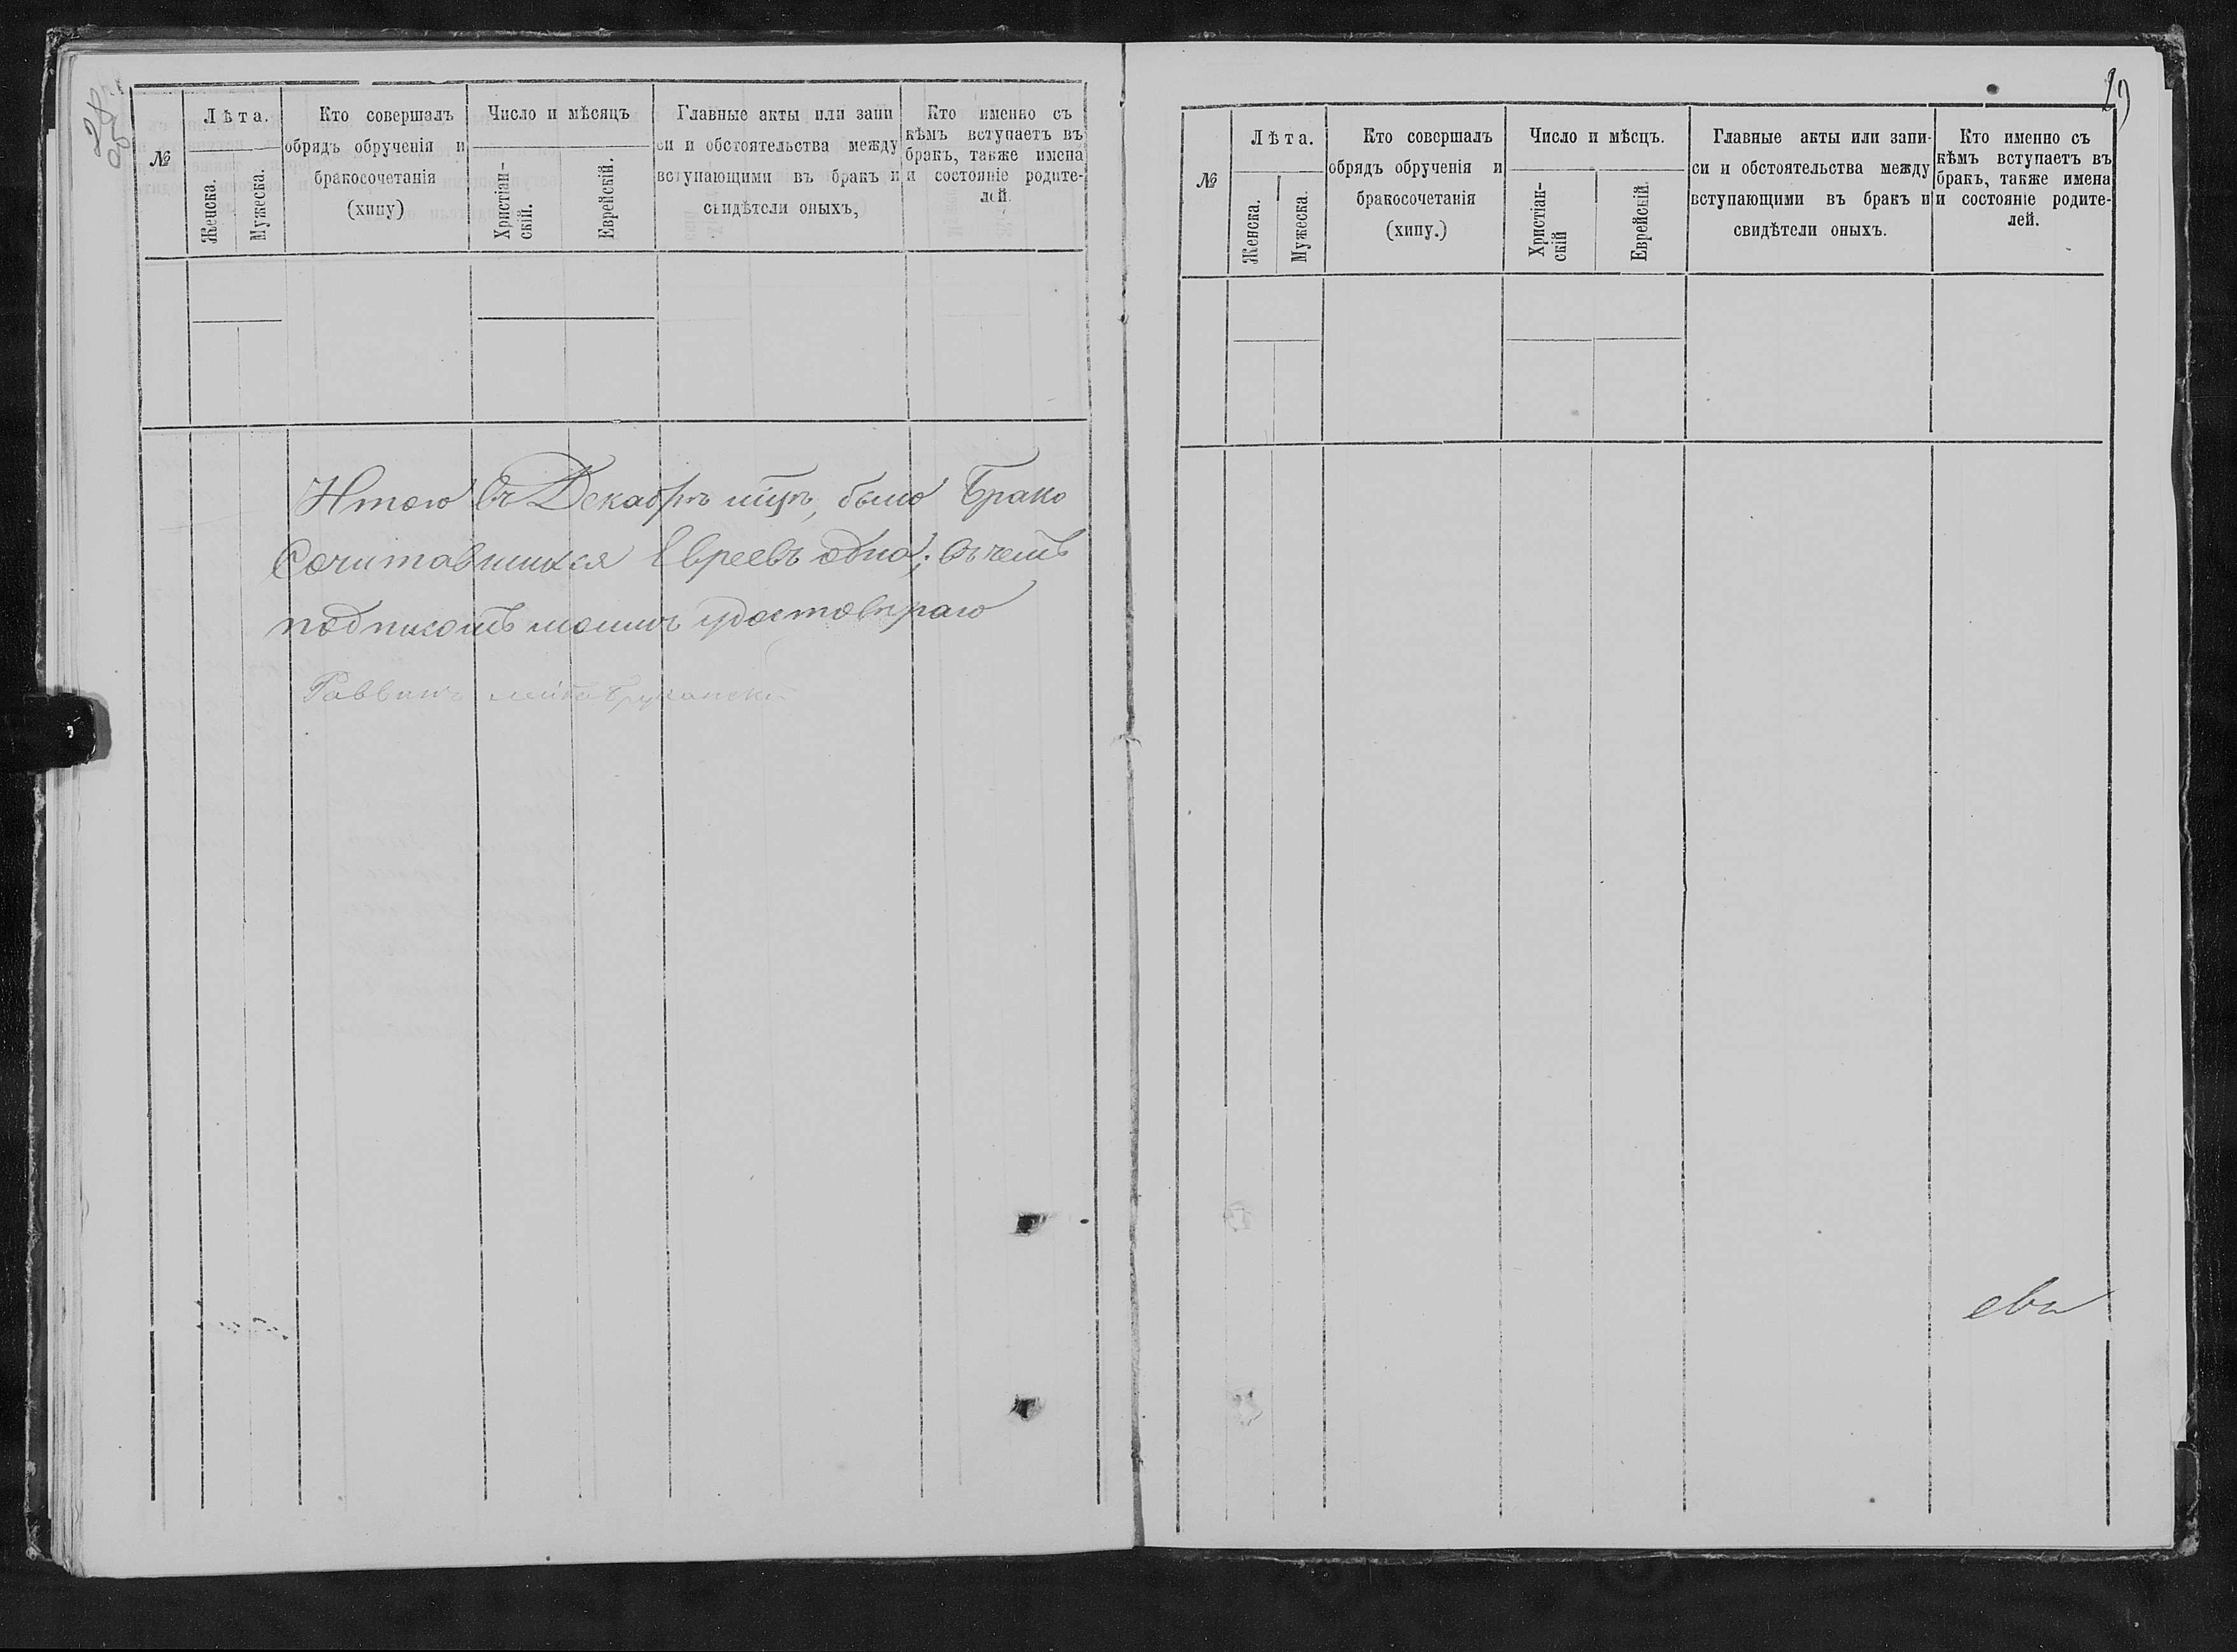 28
№
Лѣта.
Женска.
Мужеска.
Кто совершалъ
обрядъ обрученія и
бракосочетанія
(хипу)
Число и мѣсяцъ
Христіан-
скій.
Еврейскій.
Главные акты или запи
си и обстоятельства между
вступающими въ бракъ и
свидѣтели оныхъ,
Кто именно съ
кѣмъ вступаетъ въ
бракъ, также имена
и состояніе родите-
лей.
Итого въ Декабрѣ было Брако
Сочитавшихся Евреевъ одна; въ чемъ
подписомъ моимъ удостовѣраю
Раввинъ
29
№
Лѣта.
Женска.
Мужеска.
Кто совершалъ
обрядъ обрученія и
бракосочетанія
(хипу.)
Число и мѣсцъ.
Христіан-
скій
Еврейскій.
Главные акты или запи-
си и обстоятельства между
вступающими въ бракъ и
свидѣтели оныхъ.
Кто именно съ
кѣмъ вступаетъ въ
бракъ, также имена
и состояніе родите-
лей.
ева